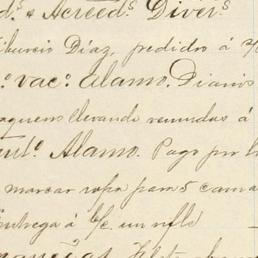 ds. & Acreeds. Divers
iburcio Díaz, pedidos á
o. vaco. Alamo. Diario
aqueros llevando remudas á
nto. Alamo. Pago por
marcar ropa para 5 cama
ntrega á f/c un rifle